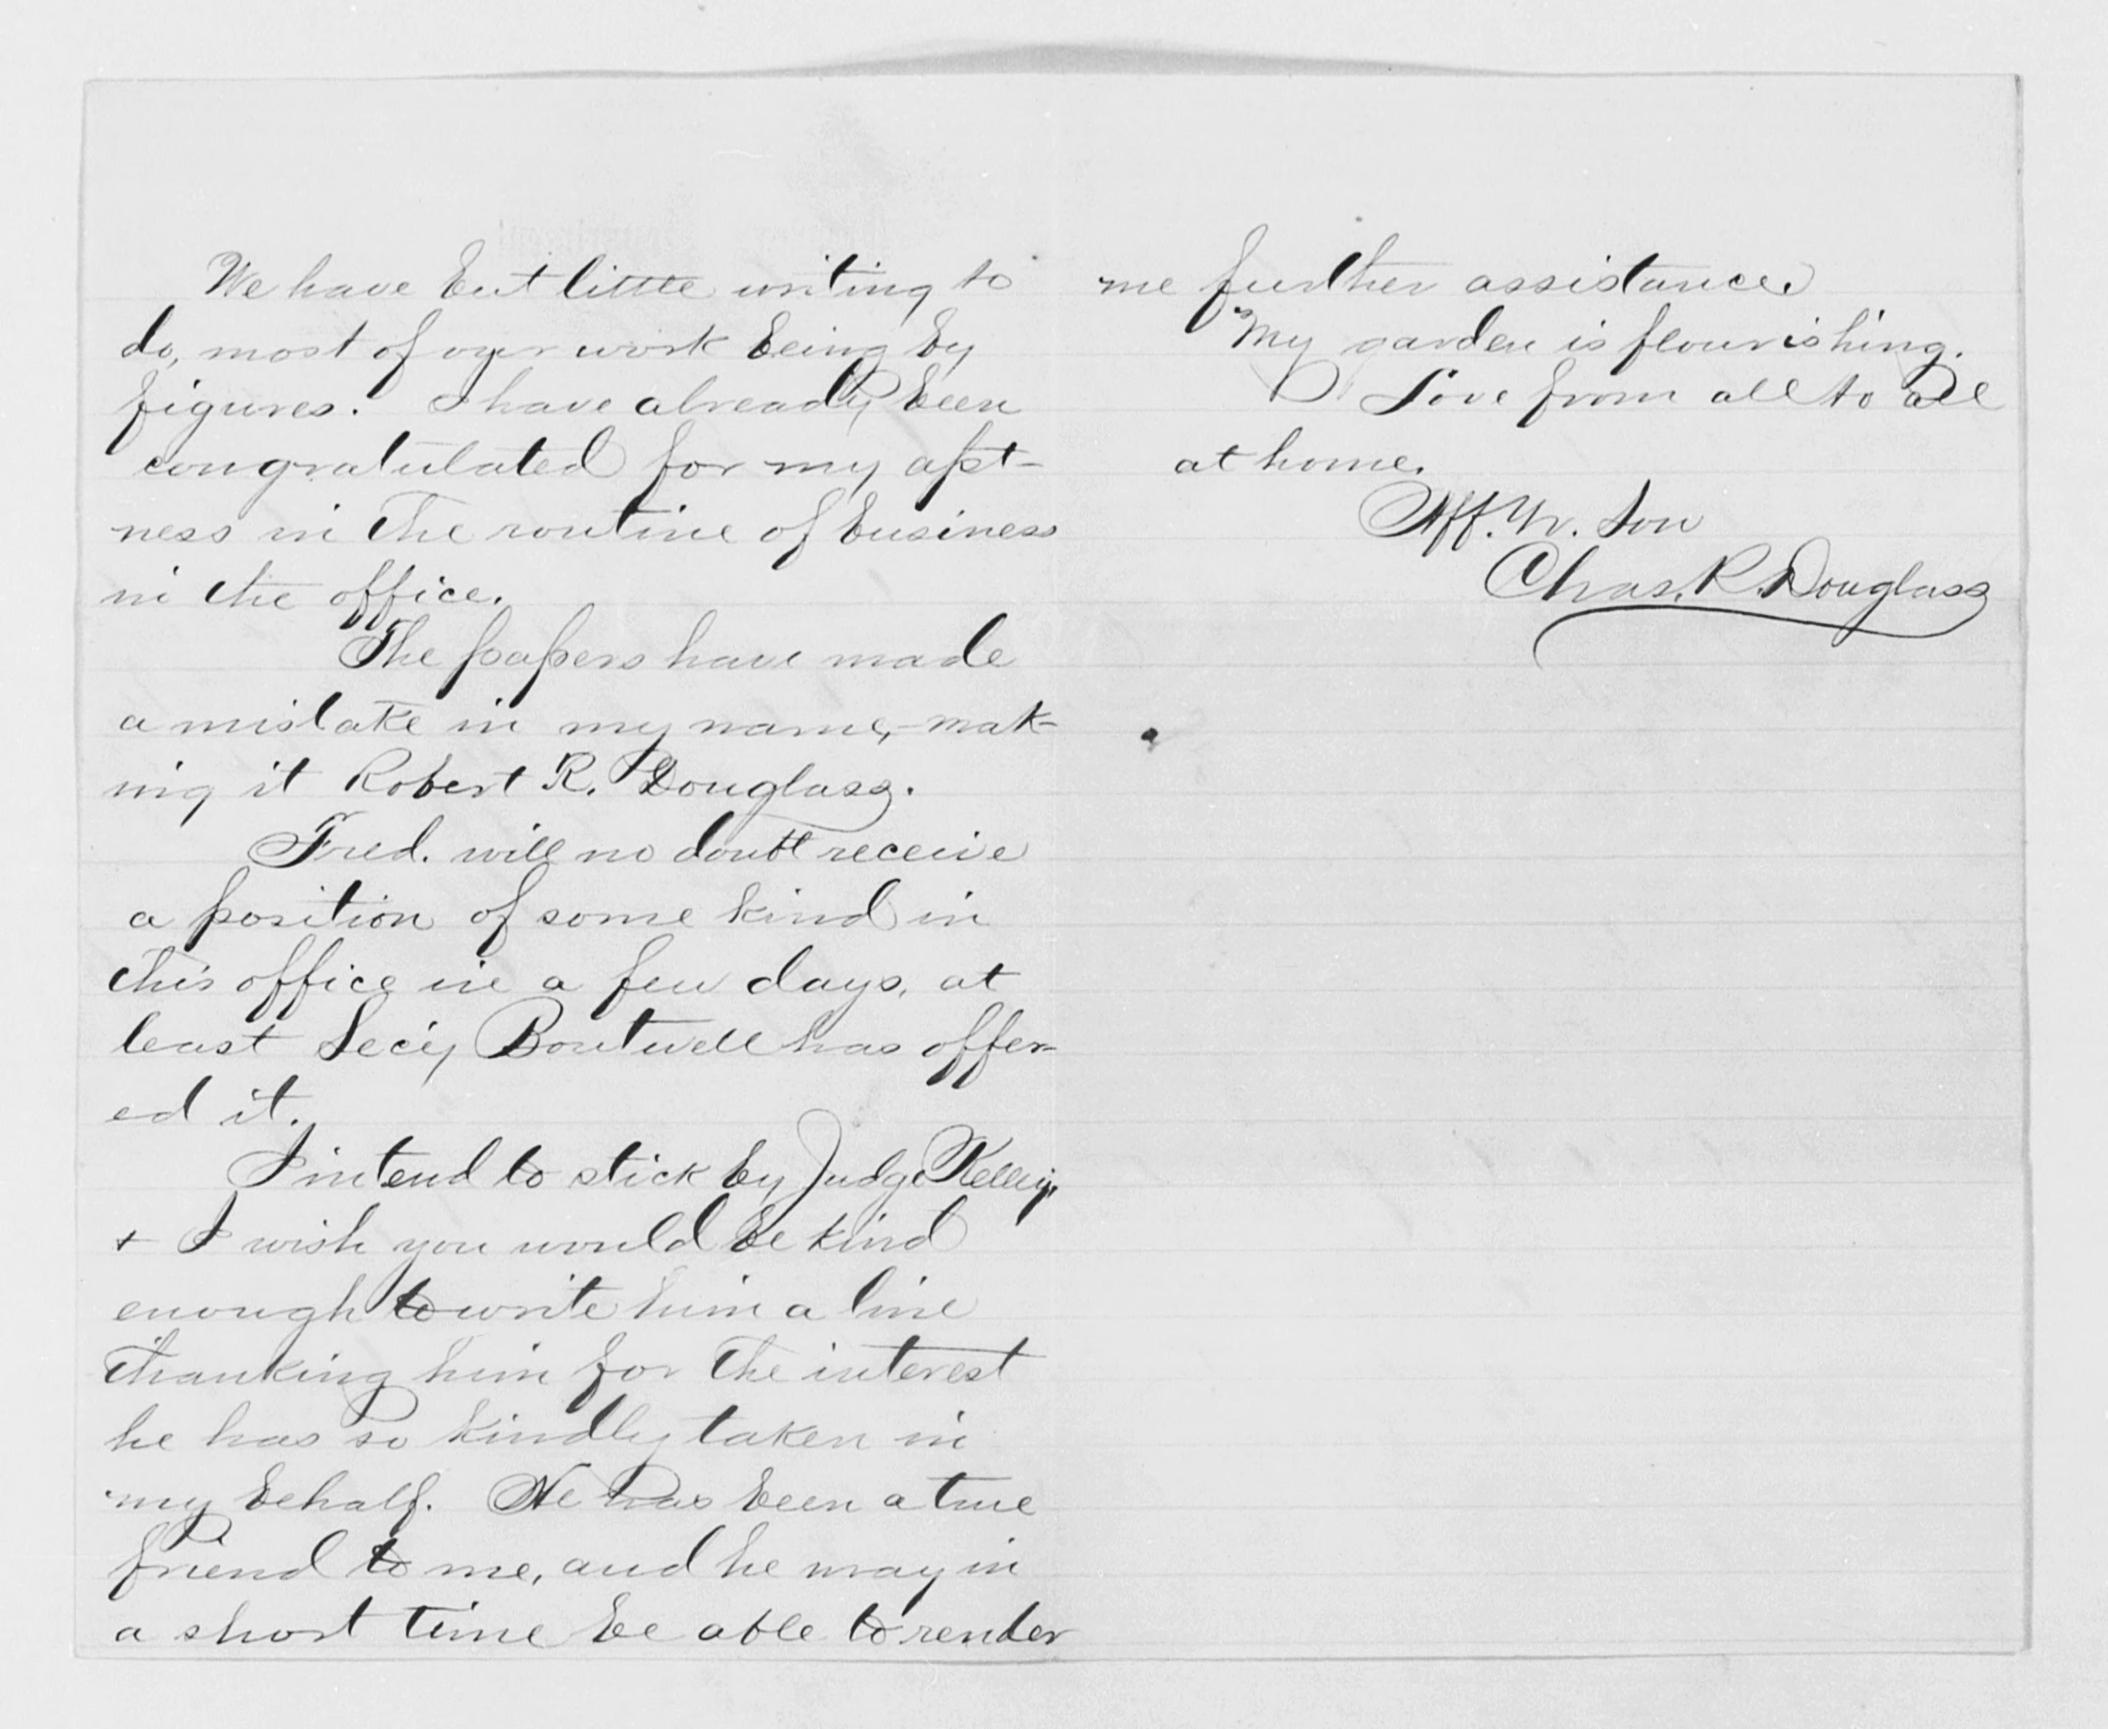 We have but little writing to
do, most of our work being by
figures. I have already been
congratulated for my apt-
ness in the routine of business
in the office.
The papers have made
a mistake in my name,-mak-
ing it Robert R. Douglass.
Fred. will no doubt receive
a position of some kind in
this office in a few days, at
least Secy Boutwell has offer-
ed it.
I intend to stick by Judge Kelley,
+ I wish you would be kind
enough to write him a line
thanking him for the interest
he has so kindly taken in
my behalf. He has been a true
friend to me, and he may in
a short time be able to render
me further assistance.
My garden is flourishing.
Love from all to all
at home.
Aff. Yr. Son
Chas. R. Douglass